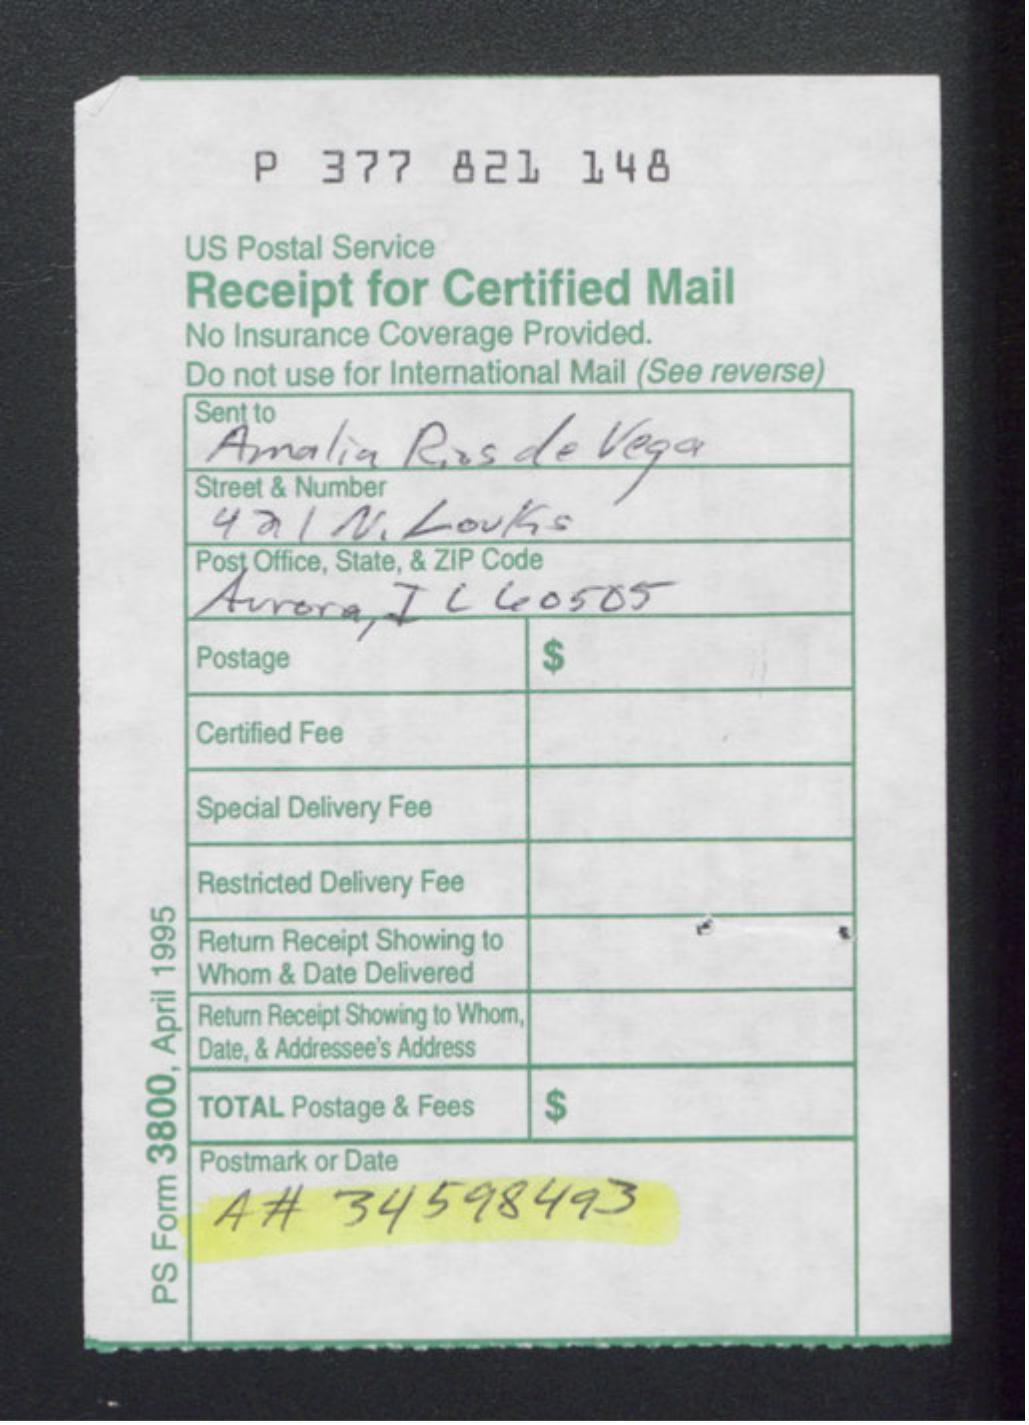 P 377 821 148
US Postal Service
Receipt for Certified Mail
No Insurance Coverage Provided.
Do not use for International Mail (See reverse)
Sent to
Amalia Rios de Vega
Street & Number
421 N. Louks
Post Office, State, & ZIP Code
Aurora, IL 60505
Postage $
Certified Fee
Special Delivery Fee
Restricted Delivery Fee
Return Receipt Showing to
Whom & Date Delivered
Return Receipt Showing to Whom,
Date, & Addressee's Address
TOTAL Postage & Fees $
Postmark or Date
A# 34598493
PS Form 3800, April 1995